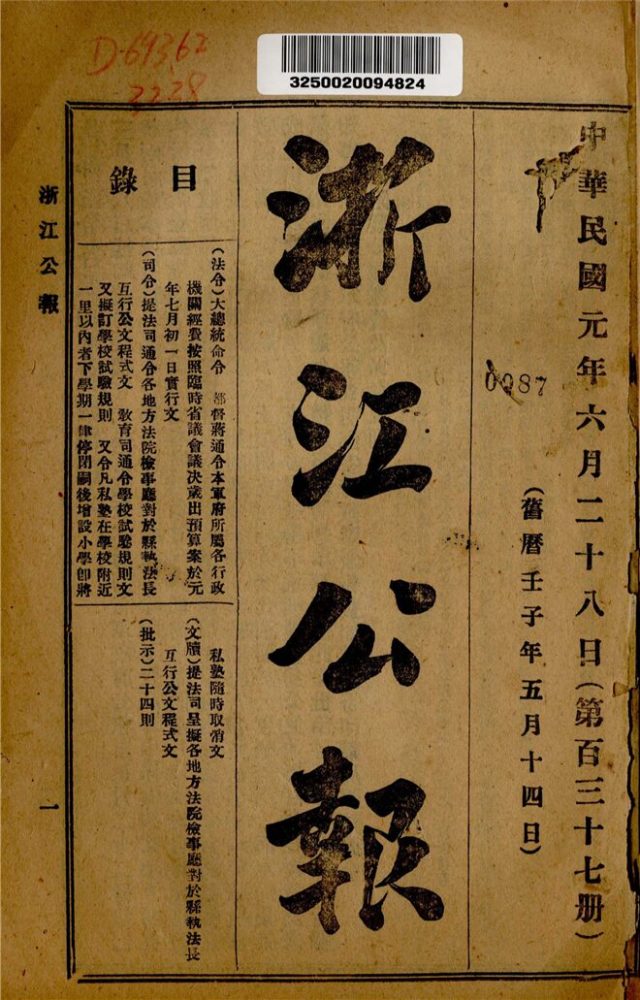 D-69362
2228
3250020094824
中華民國元年六月二十八日(第百三十七册)
(舊曆壬子年五月十四日)
0087
浙江公報
目錄
(法令)大總統命令 都督蔣通令本軍府所屬各行政
機關經費按照臨時省議會議決歲出預算案於元
年七月初一日實行文
(司令)提法司通令各地方法院檢事廳對於縣執法長
互行公文程式文 敎育司通令學校試驗規則文
又擬訂學校試驗規則 又令凡私塾在學校附近
一里以內者下學期一律停閉嗣後增設小學卽將
私塾隨時取消文
(文牘)提法司呈擬各地方法院檢事廳對於縣執法長
互行公文程式文
(批示)二十四則
浙江公報
一